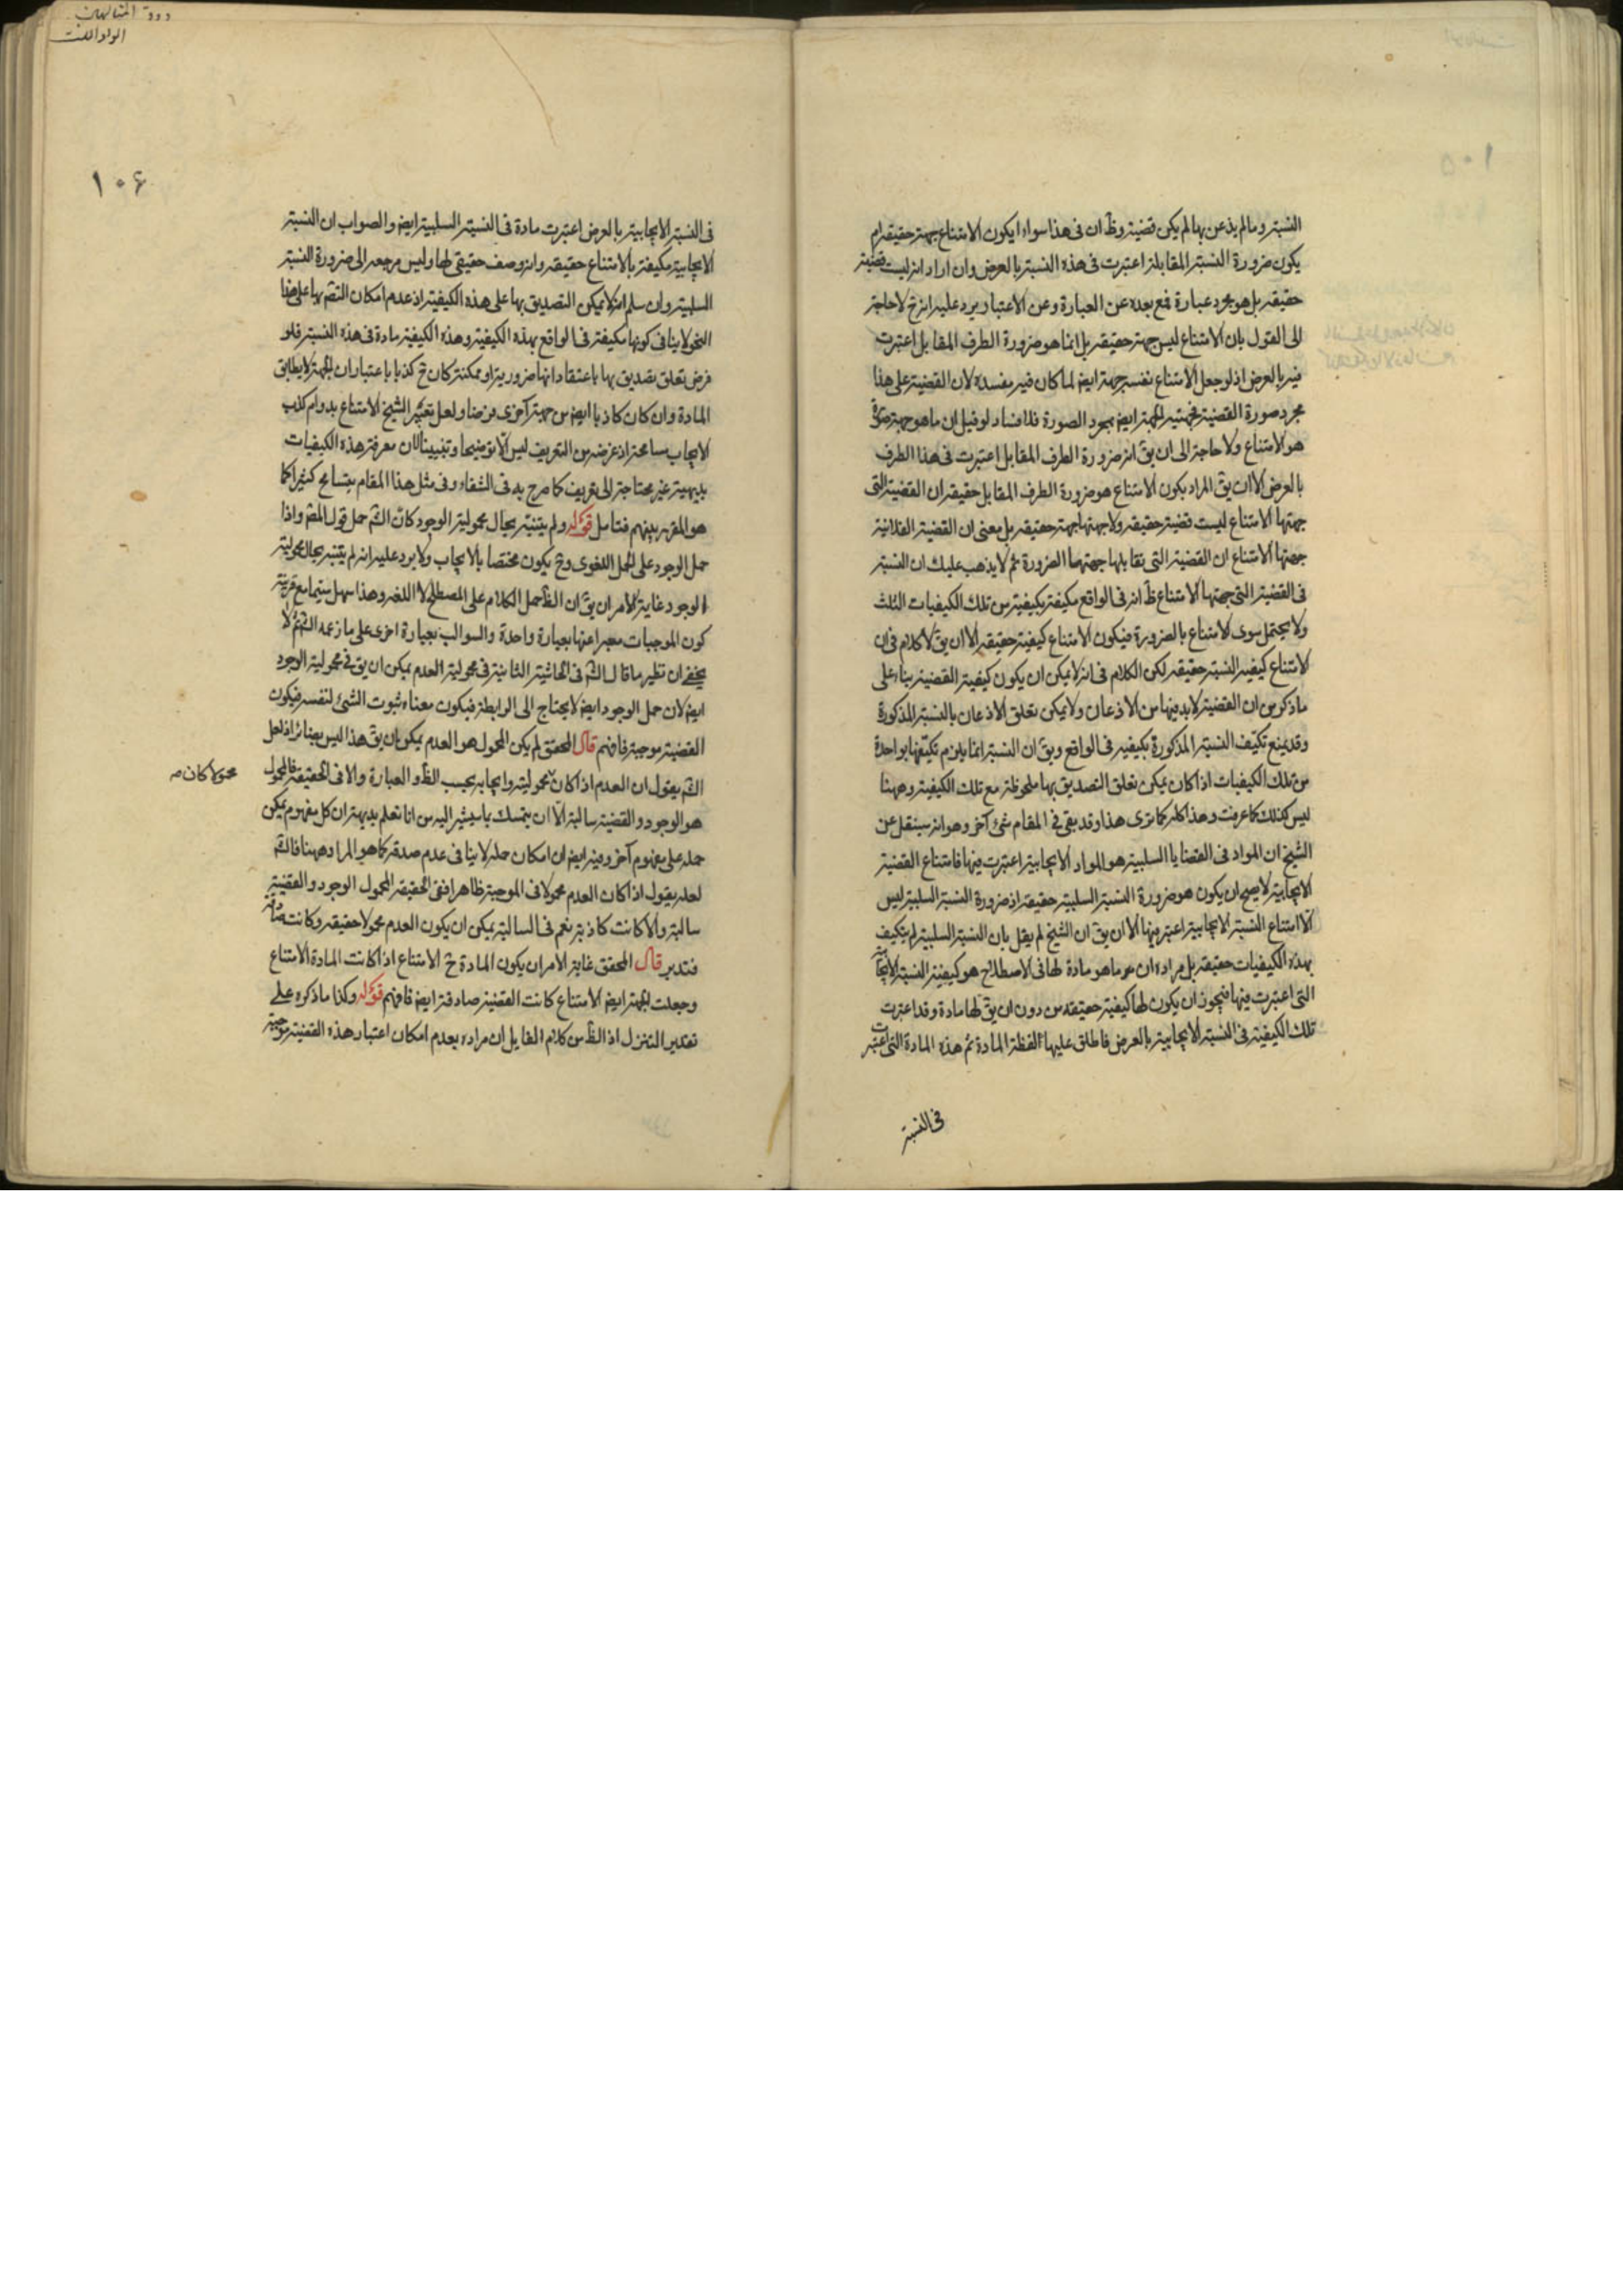 النسبة وما لم يذعن بها لم يكن قضية وظ ان فى هذا سواء ايكون الامتناع جهة حقيقة ام
يكون ضرورة النسبة المقابلة اعتبرت فى هذه النسبة بالعرض وان اراد انه ليست قضية
حقيقة بل هو مجرد عبارة فمع بعده عن العبارة وعن الاعتبار يرد عليه انه ح لا حاجة
الى القول بان الامتناع ليس جهة حقيقة بل انما هو ضرورة الطرف المقابل اعتبرت
فيه بالعرض اذ لو جعل الامتناع نفسه جهة ايض لما كان فيه مفسدة لان القضية على هذا
مجرد صورة القضية فجهتيه الجهة ايض بمجرد الصورة فلا فساد لو قيل ان ما هو جهة صورة
هو الامتناع ولا حاجة الى ان يق انه ضرورة الطرف المقابل اعتبرت فى هذا الطرف
بالعرض الا ان يق المراد بكون الامتناع هو ضرورة الطرف المقابل حقيقة ان القضية التى
جهتها الامتناع ليست قضية حقيقة ولا جهتها جهة حقيقة بل معنى ان القضية الفلانية
جهتها الامتناع ان القضية التى تقابلها جهتها الضرورة ثم لا يذهب عليك ان النسبة
فى القضية التى جهتها الامتناع ظ انه فى الواقع مكيفة بكيفية من تلك الكيفيات الثلث
ولا يحتمل سوى الامتناع بالضرورة فيكون الامتناع كيفية حقيقة الا ان يق لا كلام فى ان
الامتناع كيفية النسبة حقيقة لكن الكلام فى انه لا يمكن ان يكون كيفية القضية بناء على
ما ذكر من ان القضية لا بد فيها من الاذعان ولا يمكن تعلق الاذعان بالنسبة المذكورة
وقد يمنع تكيف النسبة المذكورة بكيفية فى الواقع ويق ان النسبة انما يلزم تكيفها بواحدة
من تلك الكيفيات اذا كان يمكن تعلق التصديق بها ملحوظة مع تلك الكيفية وههنا
ليس كذلك كما عرفت وهذا كله كما ترى هذا وقد بقى فى المقام شئ آخر وهو انه سينقل عن
الشيخ ان المواد فى القضايا السلبية هو المواد الايجابية اعتبرت فيها فامتناع القضية
الايجابية لا يصح ان يكون هو ضرورة النسبة السلبية حقيقة اذ ضرورة النسبة السلبية ليس
الا امتناع النسبة الايجابية اعتبر فيها الا ان يق ان الشيخ لم يقل بان النسبة السلبية لم يتكيف
بهذه الكيفيات حقيقة بل مراده ان ما هو مادة لها فى الاصطلاح هو كيفية النسبة الايجابية
التى اعتبرت فيها فيجوز ان يكون لها كيفية حقيقة من دون ان يق لها مادة وقد اعتبرت
تلك الكيفية فى النسبة الايجابية بالعرض فاطلق عليها لفظة المادة ثم هذه المادة التى اعتبرت
فى النسبة
١٠٦
فى النسبة الايجابية بالعرض اعتبرت مادة فى النسبة السلبية ايض والصواب ان النسبة
الايجابية مكيفة بالامتناع حقيقة وانه وصف حقيقى لها وليس مرجعه الى ضرورة النسبة
السلبية وان سلم انه لا يمكن التصديق بها على هذه الكيفية اذ عدم امكان التصديق بها على هذا
النحو لا ينافى كونها مكيفة فى الواقع بهذه الكيفية وهذه الكيفية مادة فى هذه النسبة فلو
فرض تعلق تصديق بها باعتقاد انها ضرورية او ممكنة كان ح كذبا باعتبار ان الجهة لا يطابق
المادة وان كان كاذبا ايض من جهة آخرى فرضنا ولعل تعبير الشيخ الامتناع بدوام كذب
الايجاب مسامحة اذ غرضه من التعريف ليس الا توضيحا وتنبيها لان معرفة هذه الكيفيات
بديهية غير محتاجة الى تعريف كما صرح به فى الشفاء وفى مثل هذا المقام يتسامح كثيرا كما
هو المقرر بينهم فتامل قوله ولم يتنبه بحال محمولية الوجود كان الش حمل قول المص واذا
حمل الوجود على الحمل اللغوى وح يكون مختصا بالايجاب ولا يرد عليه انه لم يتنبه بحال محمولية
الوجود غاية الامر ان يق ان الظ حمل الكلام على المصطلح لا اللغة وهذا سهل سيما مع قرينة
كون الموجبات معبرا عنها بعبارة واحدة والسوالب بعبارة اخرى على ما زعمه الش ثم لا
يخفى ان نظير ما قال الش فى الحاشية الثانية فى محمولية العدم يمكن ان يق فى محمولية الوجود
ايض لان حمل الوجود ايض لا يحتاج الى الرابطة فيكون معناه ثبوت الشئ لنفسه فيكون
القضية موجبة فافهم قال المحقق لم يكن المحمول هو العدم يمكن ان يق هذا ليس بضائر اذ لعل
الش يقول ان العدم اذا كان محمولية وايجابه بحسب الظ والعبارة والا فى الحقيقة فالمحمول
محمولا كان
هو الوجود والقضية سالبة الا ان يتمسك بما سيشير اليه من انا نعلم بديهة ان كل مفهوم يمكن
حمله على مفهوم آخر وفيه ايض ان امكان حمله لا ينافى عدم صدقه كما هو المراد ههنا فالش
لعله يقول اذا كان العدم محمولا فى الموجبة ظاهرا ففى الحقيقة المحمول الوجود والقضية
سالبة والا كانت كاذبة نعم فى السالبة يمكن ان يكون العدم محمولا حقيقة وكانت صادقة
فتدبر قال المحقق غاية الامر ان يكون المادة ح الامتناع اذا كانت المادة الامتناع
وجعلت الجهة ايض الامتناع كانت القضية صادقة ايض فافهم قوله وكذا ما ذكره على
تقدير التنزل اذ الظ من كلام القايل ان مراده بعدم امكان اعتبار هذه القضية موجبة